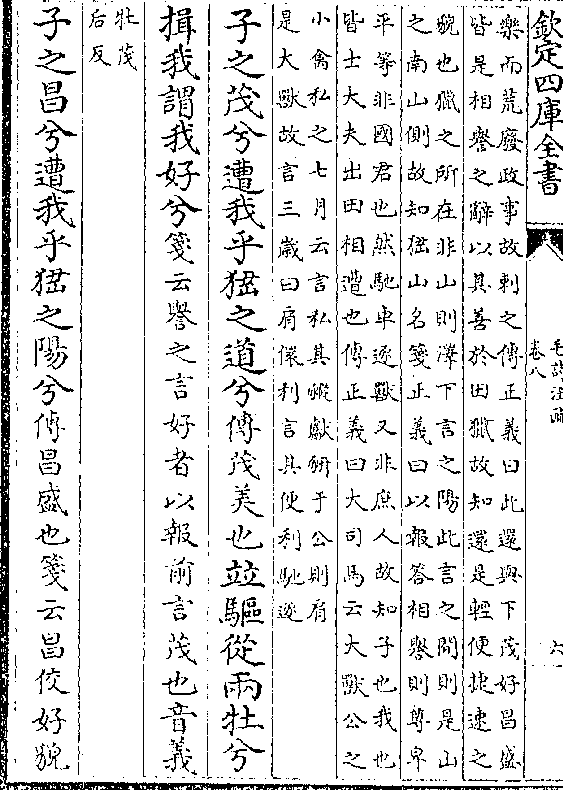 欽定四庫全書
毛詩注疏
卷八
六
樂而荒廢政事故刺之傳正義曰此還與下茂好昌盛
皆是相譽之辭以其善於田獵故知還是輕便捷速之
貌也獵之所在非山則澤下言之陽此言之間則是山
之南山側故知峱山名箋正義曰以報答相譽則尊卑
平等非國君也然馳車逐獸又非庶人故知子也我也
皆士大夫出田相遭也傳正義曰大司馬云大獸公之
小禽私之七月云言私其豵獻豜于公則肩
是大獸故言三歲曰肩儇利言其便利馳逐
子之茂兮遭我乎峱之道兮傳茂美也並驅從兩牡兮
揖我謂我好兮箋云譽之言好者以報前言茂也音義
牡茂
后反
子之昌兮遭我乎峱之陽兮傳昌盛也箋云昌佼好貌